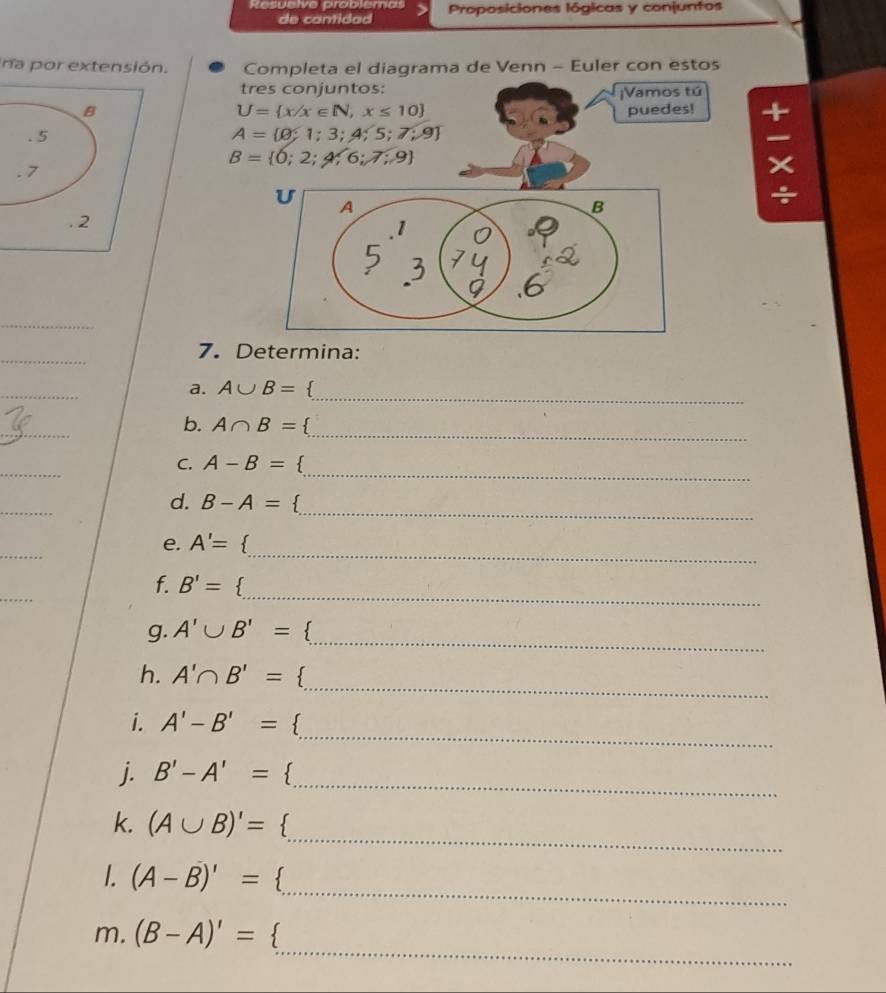 Resuelve problemas
de cantidad
> Proposiciones lógicas y conjuntos
por extensión.
B
. 5
. 7
. 2
Completa el diagrama de Venn - Euler con estos
tres conjuntos:
¡Vamos tú
puedes!
U = {x/x ∈ N, x ≤ 10}
A = {0; 1; 3; 4; 5; 7; 9}
B = {0; 2; 4; 6; 7; 9}
+
−
×
÷
U
A
B
.1 0
5 .3 7 4 .2
9 .6
7. Determina:
a. A ∪ B = {
b. A ∩ B = {
c. A − B = {
d. B − A = {
e. A' = {
f. B' = {
g. A' ∪ B' = {
h. A' ∩ B' = {
i. A' − B' = {
j. B' − A' = {
k. (A ∪ B)' = {
l. (A − B)' = {
m. (B − A)' = {